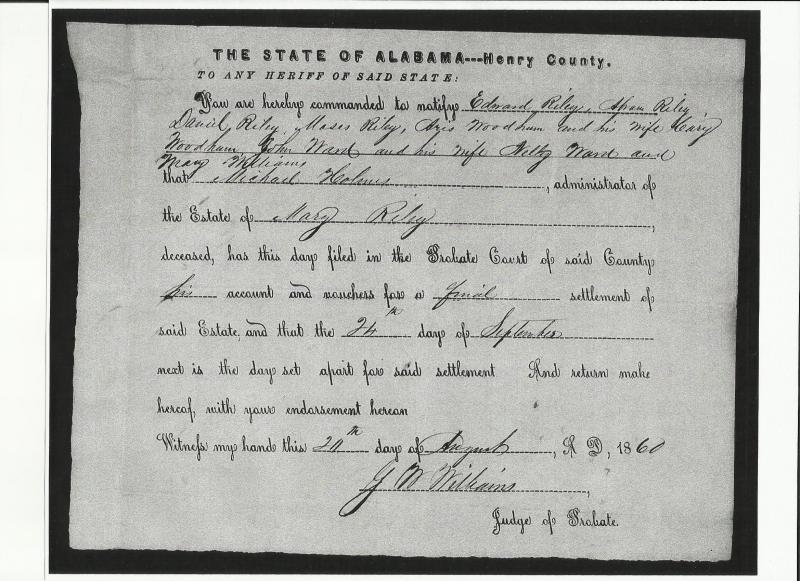 THE STATE OF ALABAMA---Henry County.
TO ANY HERIFF OF SAID STATE:
You are hereby commanded to notify Edward Riley, Abram Riley
Daniel Riley, Moses Riley, Aris Woodham and his wife Cary
Woodham, John Ward and his wife Ward and
Mary Williams
that Michael Holmes, administrator of
the Estate of Mary Riley,
deceased, has this day filed in the Probate Court of said County
his account and vouchers for a final settlement of
said Estate, and that the 24th day of September
next is the day set apart for said settlement And return make
hereof, with your endorsement hereon
Witness my hand this day of August, A D, 1860
J W Williams,
Judge of Probate.